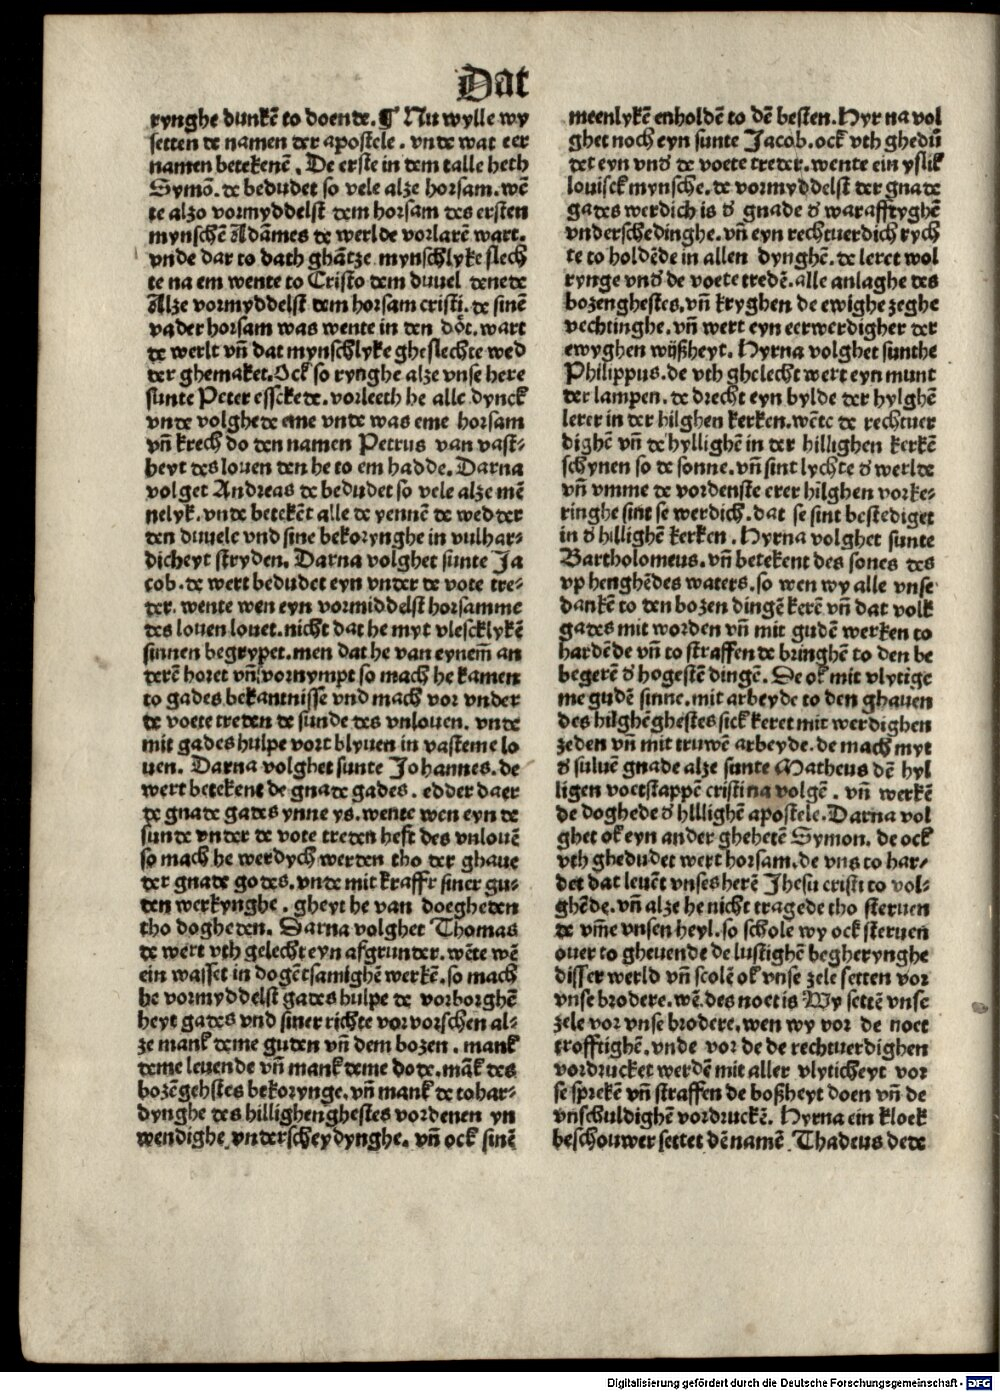 Dat
rynghe dunkē to doende. ¶ Nu wylle wy
setten de namen der apostele . vnde wat eer
namen betekenē . De erste in dem talle heth
Symō. de bedudet so vele alze horsam. wē
te alzo vormyddelst dem horsam des ersten
mynschē Adāmes de werlde vorlarē wart.
vnde dar to dath ghātze mynschlyke slech
te na em wente to Cristo dem duuel denede
Alze vormyddelst dem horsam cristi. de sinē
vader horsam was wente in den dōt. wart
de werlt vn̄ dat mynschlyke gheslechte wed
der ghemaket. Ock so rynghe alze vnse here
sunte Peter esschede. vorleeth he alle dynck
vnde volghede eme vnde was eme horsam
vn̄ krech do den namen Petrus van vast⸗
heyt des louen den he to em hadde. Darna
volget Andreas de bedudet so vele alze mē
nelyk. vnde betekēt alle de yennē de wedder
den duuele vnd sine bekorynghe in vulhar⸗
dicheyt stryden. Darna volghet sunte Ja
cob. de wert bedudet eyn vnder de vote tre⸗
der. wente wen eyn vormiddelst horsamme
des louen louet. nicht dat he myt vlescklykē
sinnen begrypet. men dat he van eynem̄ an
derē horet vn̄ vornympt so mach he kamen
to gades bekantnisse vnd mach vor vnder
de voete treden de sunde des vnlouen. vnde
mit gades hulpe vort blyuen in vasteme lo
uen. Darna volghet sunte Johannes. de
wert betekent de gnade gades . edder daer
de gnade gades ynne ys. wente wen eyn de
sunde vnder de vote treden heft des vnlouē
so mach he werdych werden tho der ghaue
der gnade godes. vnde mit kraffr siner gu⸗
den werkynghe . gheyt he van doegheden
tho dogheden. Darna volghet Thomas
de wert vth gelecht eyn afgrunder. wēte wē
ein wasset in dogētsamighē werkē. so mach
he vormyddelst gades hulpe de vorborghē
heyt gades vnd siner richte vorvorschen al⸗
ze mank deme guden vn̄ dem bozen . mank
deme leuende vn̄ mank deme dode. māk des
bozēgehstes bekorynge. vn̄ mank de tohar⸗
dynghe des hillighenghestes vordenen yn
wendighe vnderscheydynghe. vn̄ ock sinē
meenlykē enholdē to dē besten. Hyr na vol
ghet noch eyn sunte Jacob. ock vth ghedū
det eyn vnd̄ de voete treder. wente ein yslik
louisck mynsche. de vormyddelst der gnade
gades werdich is d̄ gnade d̄ warafftyghē
vnderschedinghe. vn̄ eyn rechtuerdich rych
te to holdēde in allen dynghē. de leret wol
rynge vnd̄ de voete tredē. alle anlaghe des
bozenghestes. vn̄ kryghen de ewighe zeghe
vechtinghe. vn̄ wert eyn eerwerdigher der
ewyghen wijßheyt. Hyrna volghet sunthe
Philippus. de vth ghelecht wert eyn munt
der lampen. de drecht eyn bylde der hylghē
lerer in der hilghen kerken. wēte de rechtuer
dighē vn̄ de hyllighē in der hillighen kerkē
schynen so de sonne. vn̄ sint lychte d̄ werlde
vn̄ vmme de vordenste erer hilghen vorke⸗
ringhe sint se werdich. dat se sint bestediget
in d̄ hillighē kerken . Hyrna volghet sunte
Bartholomeus. vn̄ betekent des sones des
vp henghēdes waters. so wen wy alle vnse
dankē to den bozen dingē kerē vn̄ dat volk
gades mit worden vn̄ mit gudē werken to
hardēde vn̄ to straffen de bringhē to den be
begerē d̄ hogestē dingē. De ok mit vlytige
me gudē sinne. mit arbeyde to den ghauen
des hilghēghestes sick keret mit werdighen
zeden vn̄ mit truwē arbeyde. de mach myt
d̄ suluē gnade alze sunte Matheus dē hyl
ligen voetstappē cristi na volgē . vn̄ werkē
de doghede d̄ hillighē apostele. Darna vol
ghet ok eyn ander ghehetē Symon. de ock
vth ghedudet wert horsam. de vns to har⸗
det dat leuēt vnses herē Jhesu cristi to vol⸗
ghēde. vn̄ alze he nicht tragede tho steruen
de vm̄e vnsen heyl. so schole wy ock steruen
ouer to gheuende de lustighē begherynghe
disser werld vn̄ scolē ok vnse zele setten vor
vnse brodere. wē. des noet is Wy settē vnse
zele vor vnse brodere. wen wy vor de noet
trofftighē. vnde vor de de rechtuerdighen
vordrucket werdē mit aller vlyticheyt vor
se sprekē vn̄ straffen de boßheyt doen vn̄ de
vnschuldighē vordruckē. Hyrna ein kloek
beschouwer settet dē namē Thadeus dede
Digitalisierung gefördert durch die Deutsche Forschungsgemeinschaft - DFG